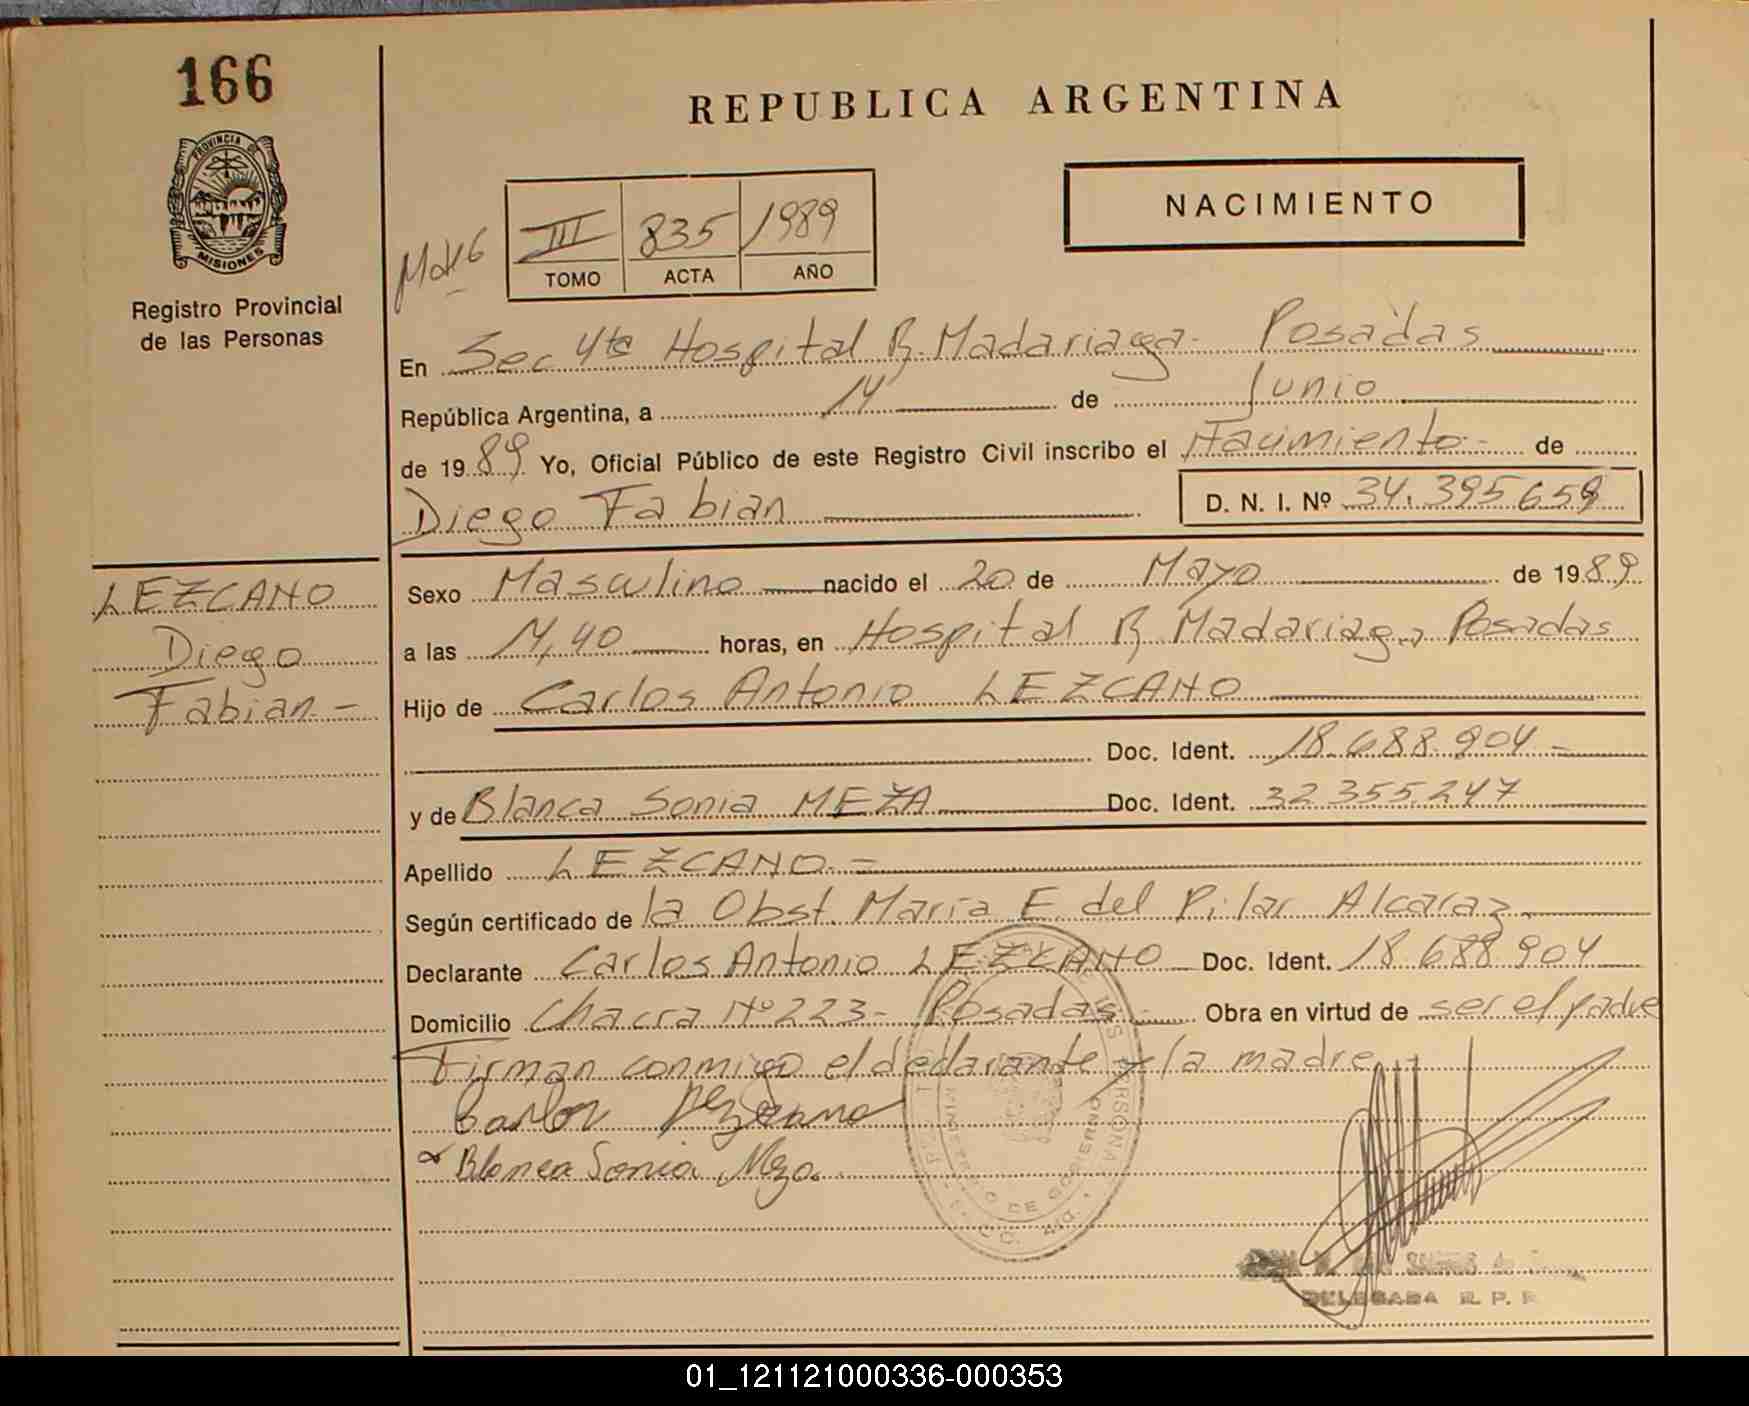 166
REPUBLICA ARGENTINA
PROVINCIA DE
MISIONES
Registro Provincial
de las Personas
NACIMIENTO
III 835 1989
TOMO ACTA AÑO
En Sec 4ta Hospital R. Madariaga. Posadas
República Argentina, a 14 de Junio
de 1989 Yo, Oficial Público de este Registro Civil inscribo el Nacimiento de
Diego Fabian D. N. I. Nº 34.395.659
LEZCANO
Diego
Fabian.-
Sexo Masculino nacido el 20 de Mayo de 1989
a las 14,40 horas, en Hospital R. Madariaga, Posadas
Hijo de Carlos Antonio LEZCANO
Doc. Ident. 18.688.904-
y de Blanca Sonia MEZA Doc. Ident. 32.355.247
Apellido LEZCANO.-
Según certificado de la Obst. María E. del Pilar Alcaraz.
Declarante Carlos Antonio LEZCANO Doc. Ident. 18.688.904
Domicilio Chacra Nº 223- Posadas- Obra en virtud de ser el padre
Firman conmigo el declarante y la madre
Carlos Lezcano
Blanca Sonia Meza.
MINISTERIO DE GOBIERNO
DELEGADA R. P. P.
01_121121000336-000353